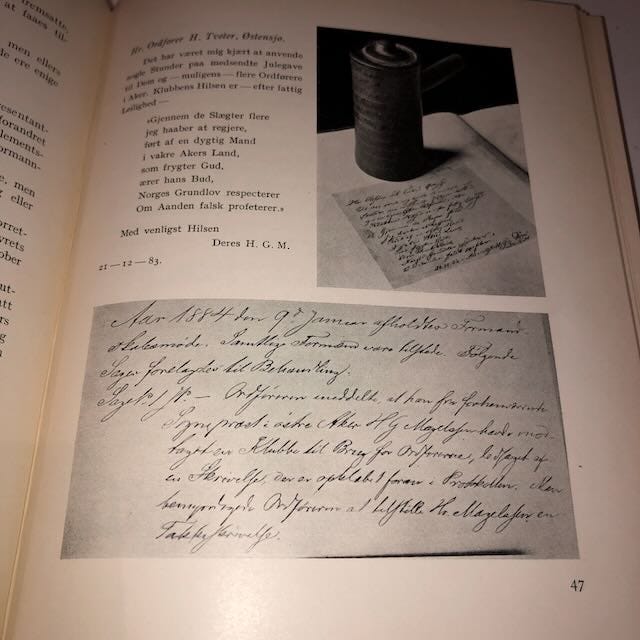 tremsatte.
at faaes til-
men ellers
de ere enige
esentant-
forandret
lements-
ormann-
e, men
g eller
orret-
yrets
ober
ut-
att
rs
g
n
Hr. Ordfører H. Tveter, Østensjø.
Det har været mig kjært at anvende
nogle Stunder paa medsendte Julegave
til Dem og — muligens — flere Ordførere
i Aker. Klubbens Hilsen er — efter fattig
Leilighed —
»Gjennem de Slægter flere
jeg haaber at regjere,
ført af en dygtig Mand
i vakre Akers Land,
som frygter Gud,
ærer hans Bud,
Norges Grundlov respecterer
Om Aanden falsk profeterer.»
Med venligst Hilsen
Deres H. G. M.
21—12—83.
Aar 1884 den 9de Januar afholdtes Formand-
skabsmøde. Samtlige Formænd vare tilstede. Følgende
Sager foretoges til Behandling.
Sag No. 1 — Ordføreren meddelte, at han fra forhenværende
Sognepræst i østre Aker H G Magelssen havde mod-
taget en Klubbe til Brug for Ordføreren, ledsaget af
en Skrivelse, der er opklæbet foran i Protokollen. Man
bemyndigede Ordføreren at tilstille Hr. Magelssen en
Takkeskrivelse.
47